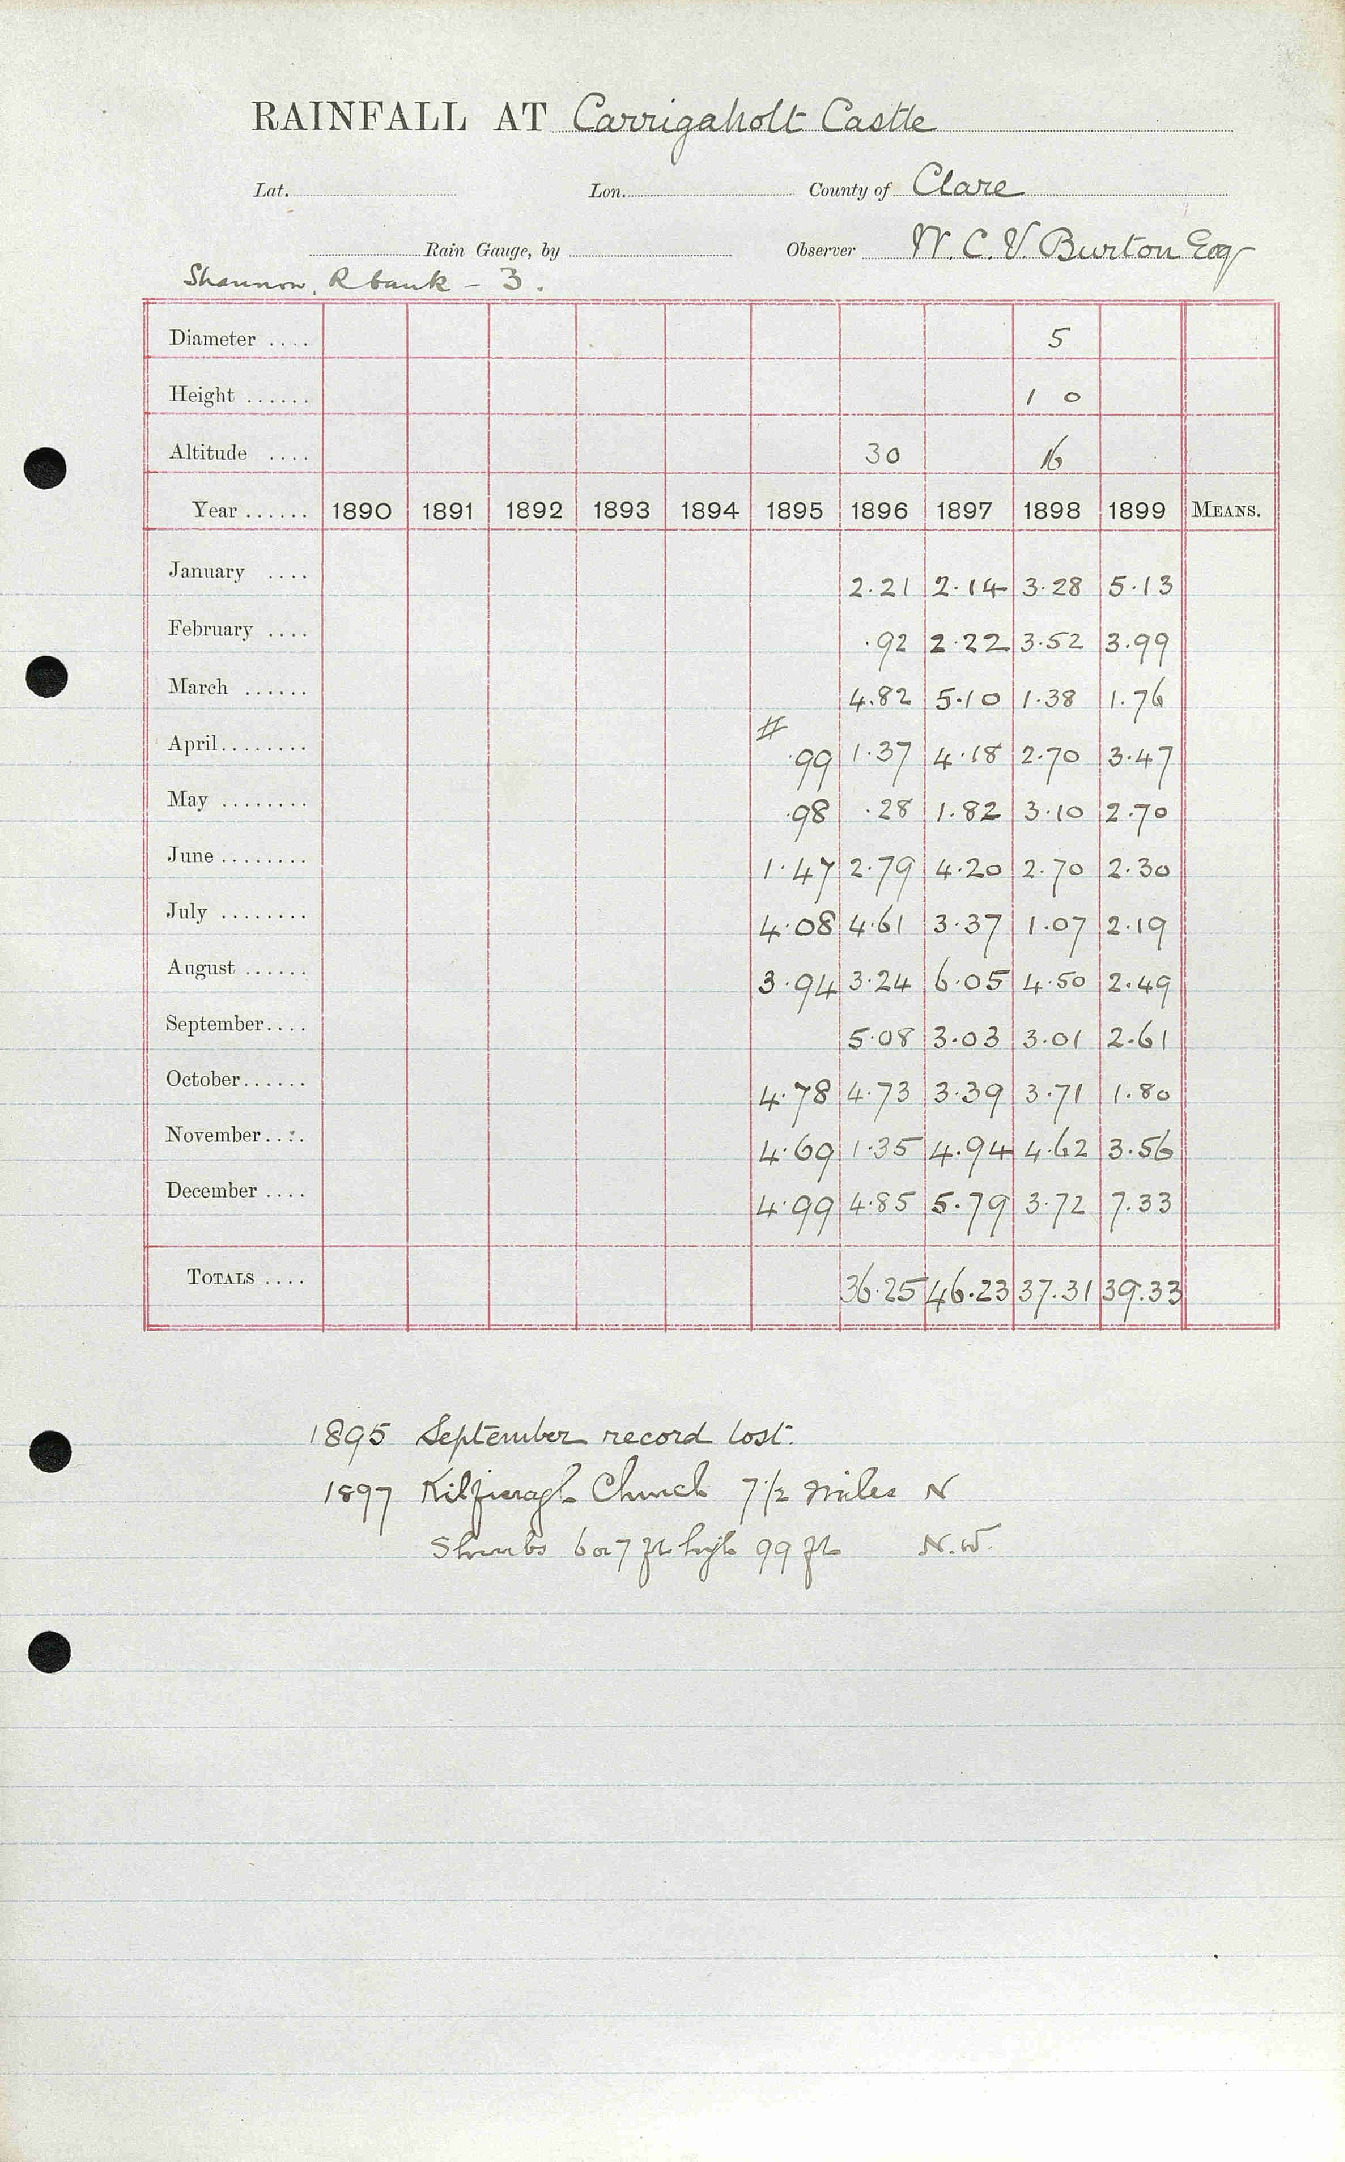 RAINFALL AT Carrigaholt Castle
Lat. Lon. County of Clare
Rain Gauge, by Observer W. C. V. Burton Esq
Shannon, R bank - 3.
Diameter .... 5
Height ...... 1 0
Altitude .... 30 16
Year ...... 1890 1891 1892 1893 1894 1895 1896 1897 1898 1899 MEANS.
January .... 2.21 2.14 3.28 5.13
February .... .92 2.22 3.52 3.99
March ...... 4.82 5.10 1.38 1.76
April ........ # .99 1.37 4.18 2.70 3.47
May ........ .98 .28 1.82 3.10 2.70
June ........ 1.47 2.79 4.20 2.70 2.30
July ........ 4.08 4.61 3.37 1.07 2.19
August ...... 3.94 3.24 6.05 4.50 2.49
September.... 5.08 3.03 3.01 2.61
October...... 4.78 4.73 3.39 3.71 1.80
November.... 4.69 1.35 4.94 4.62 3.56
December .... 4.99 4.85 5.79 3.72 7.33
TOTALS .... 36.25 46.23 37.31 39.33
1895 September record lost.
1897 Kilfieragh Church 7 1/2 miles N
Shrubs 6 or 7 ft high 99 ft N.W.